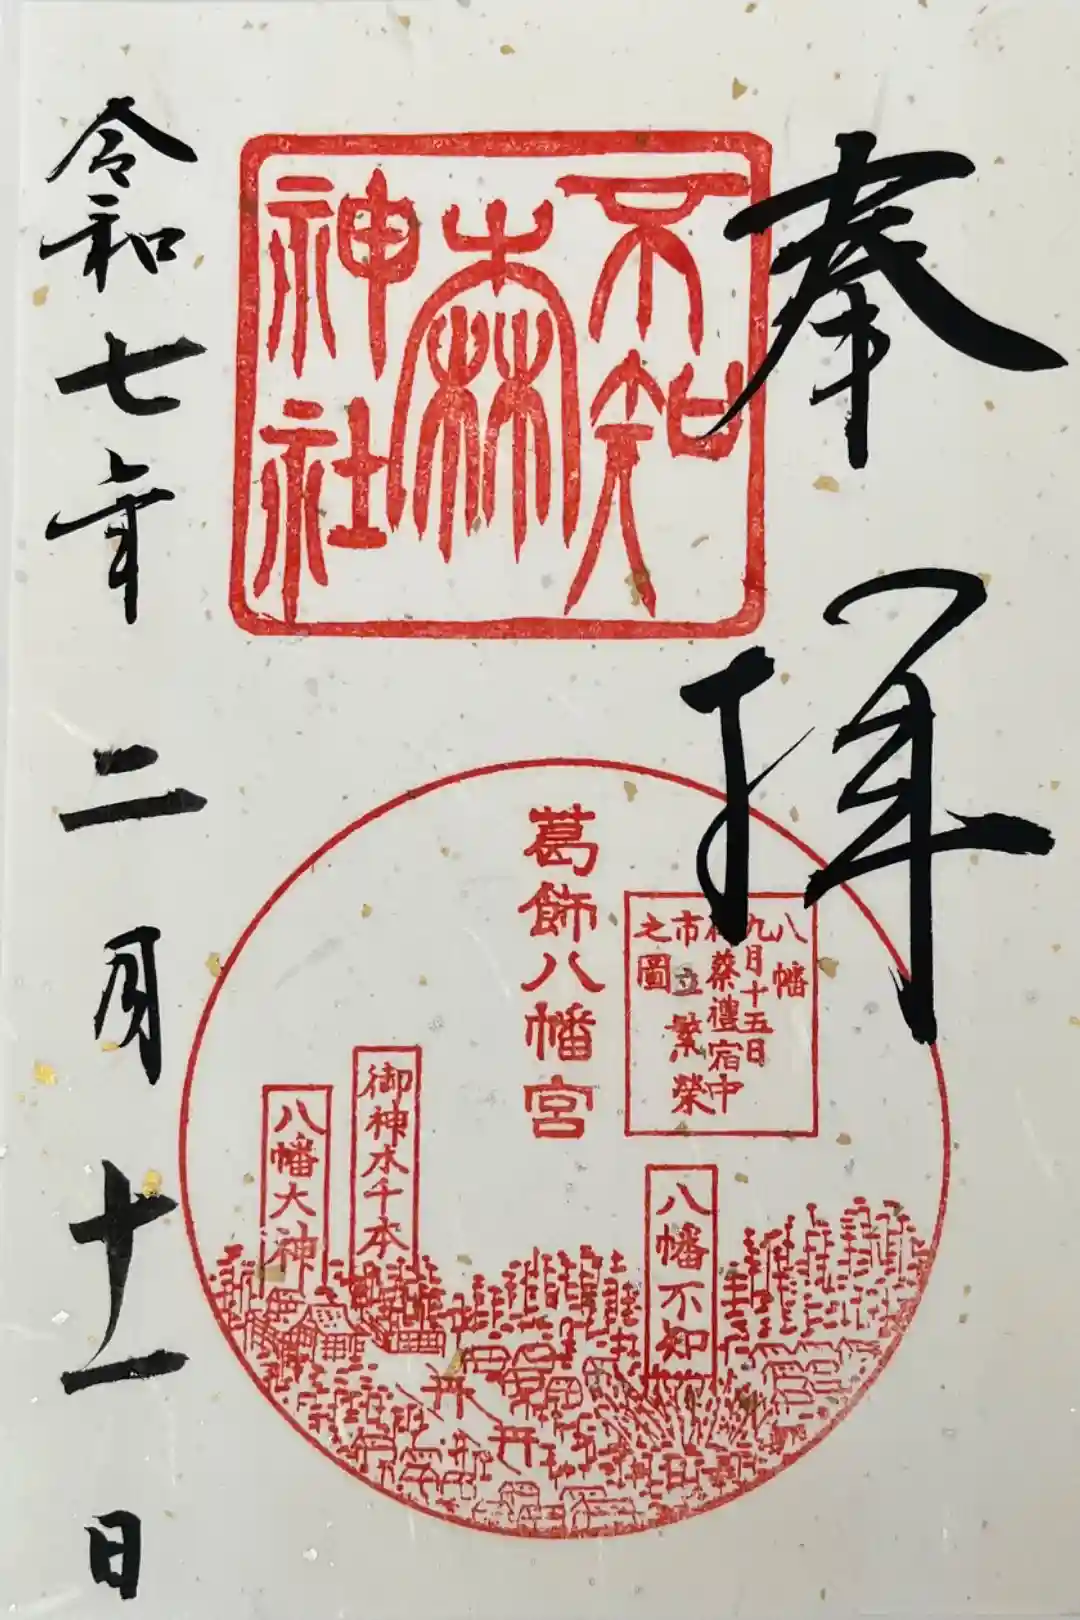 奉拝
不知
森
神社
八幡
九月十五日
祭禮宿中
市立繁榮
之圖
葛飾八幡宮
八幡不知
御神木千本
八幡大神
令和七年二月十一日